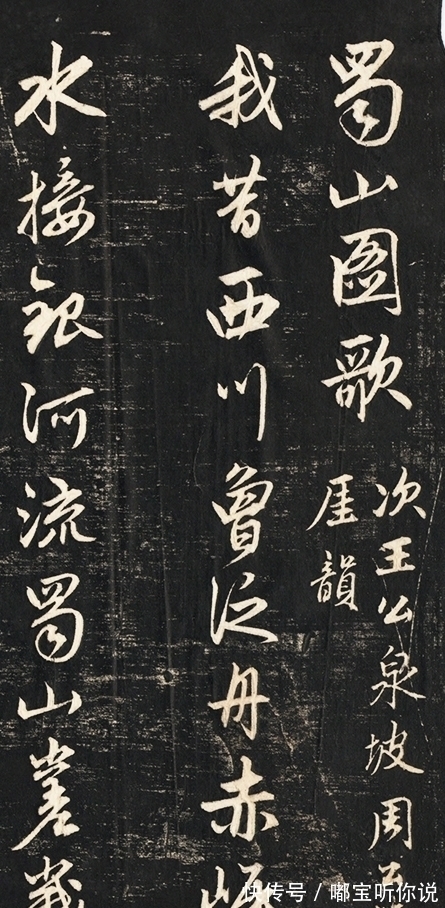 蜀山圖歌
次王公泉坡周
厓韻
我昔西川曾泛舟赤
水接銀河流蜀山嵳峩
快传号/嘟宝听你说